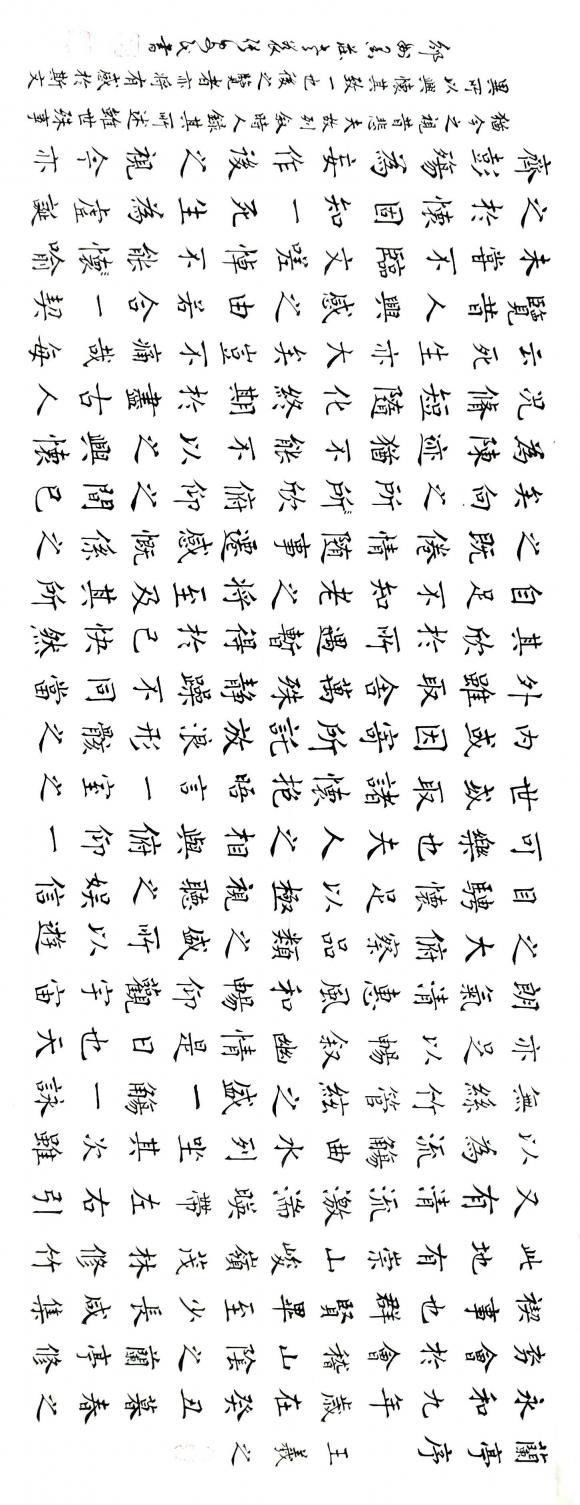 蘭亭序 王羲之
永和九年歲在癸丑暮春之
初會於會稽山陰之蘭亭修
禊事也群賢畢至少長咸集
此地有崇山峻嶺茂林修竹
又有清流激湍暎帶左右引
以為流觴曲水列坐其次雖
無絲竹管絃之盛一觴一詠
亦足以暢敘幽情是日也天
朗氣清惠風和暢仰觀宇宙
之大俯察品類之盛所以遊
目騁懷足以極視聽之娛信
可樂也夫人之相與俯仰一
世或取諸懷抱晤言一室之
內或因寄所託放浪形骸之
外雖取舍萬殊靜躁不同當
其欣於所遇暫得於己快然
自足不知老之將至及其所
之既倦情隨事遷感慨係之
矣向之所所欣俯仰之間已
為陳迹猶不能不以之興懷
況脩短隨化終期於盡古人
云死生亦大矣豈不痛哉每
覽昔人興感之由若合一契
未嘗不臨文嗟悼不能懷喻
之於懷固知一死生為虛誕
齊彭殤為妄作後之視今亦
猶今之視昔悲夫故列敘時人錄其所述雖世殊事
異所以興懷其致一也後之覽者亦將有感於斯文